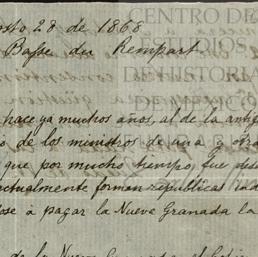 osto 28 de 1868
Basse du Rempart.
CENTRO DE
ESTUDIOS
DE HISTORIA
DE MEXICO
hace ya muchos años, al de la antig
o de los ministros de una y otra
que por mucho tiempo, fue
actualmente forman republicas
dose á pagar la Nueve Granada la
de la Nueva